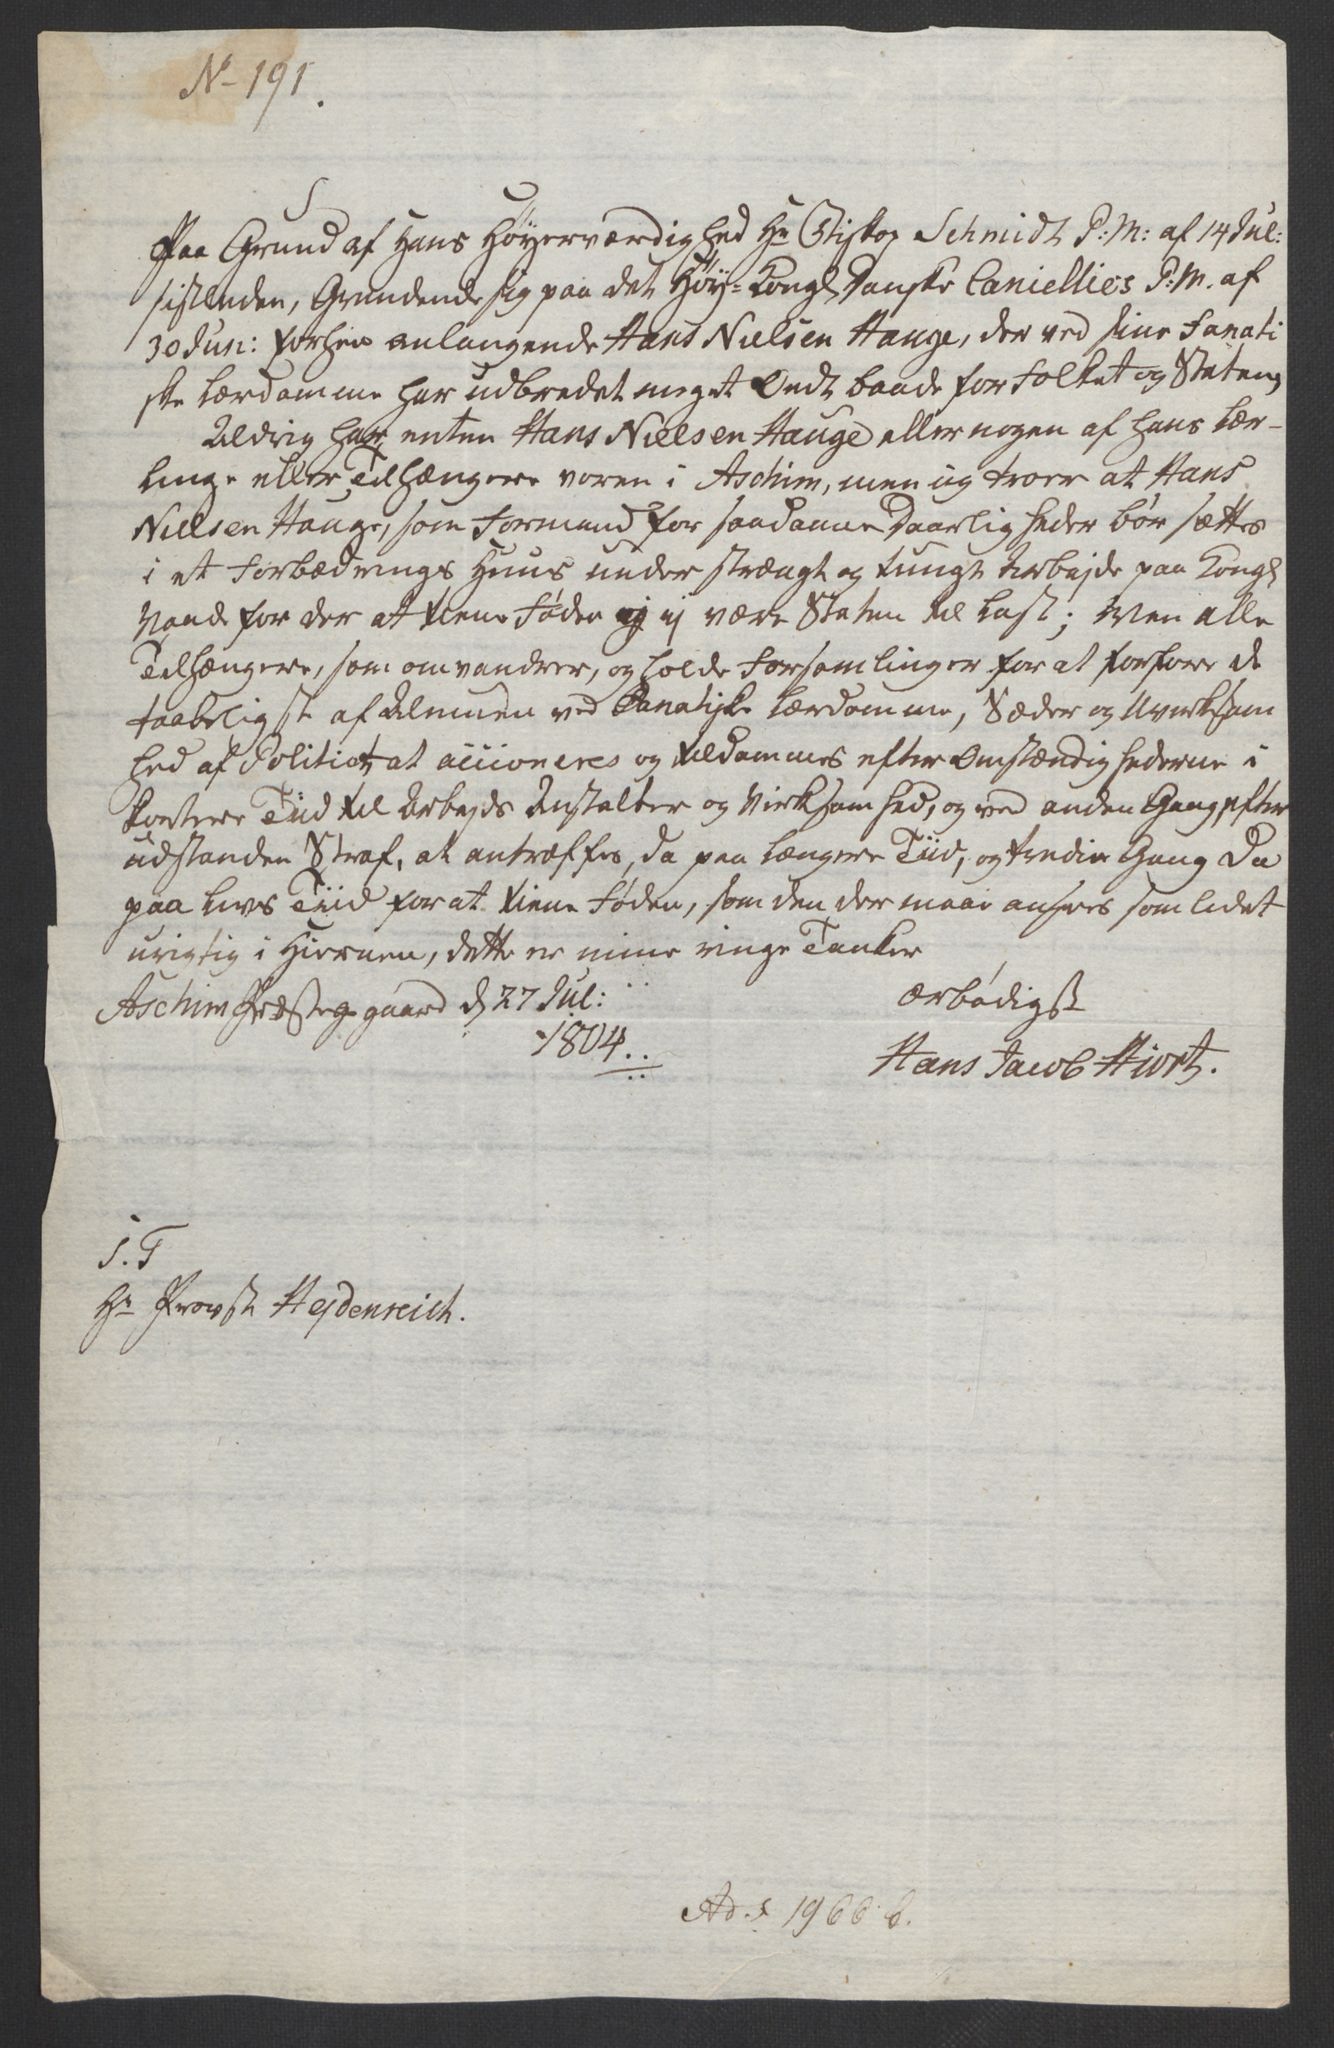 No 191.
Paa Grund af Hans Höyærværdighed Hr Biskop Schmidt P:M: af 14 Jul:
sistleden, Grundende sig paa det Höy-Kongl Danske Cancellies P:M. af
30 Jun: forhen anlangende Hans Nielsen Hauge, der ved sine Fanati
ske Lærdomme har udbredet meget Ondt baade for Folket og Staten,
Aldrig har enten Hans Nielsen Hauge eller nogen af hans Lær-
linge eller Tilhængere voren i Aschim, men ieg troer at Hans
Nielsen Hauge, som Formand for saadanne Daarligheder bør sættes
i et Forbædrings Huus under strængt og tungt Arbejde paa Kongl
Naade for der at tiene Føden ej være Staten til Last; Men alle
Tilhængere, som omvandrer, og holde Forsamlinger for at forføre de
taabeligste af Almuen ved Fanatiske Lærdomme, Sæder og Uvirksom
hed af Politiet at actioneres og tildømmes efter Omstændighederne i
kortere Tiid til Arbejds Anstalter og Virksomhed, og ved anden Gang, efter
udstanden Straf, at antræffes, da paa længere Tiid, og tredie Gang da
paa Livs Tiid for at tiene Føden, som den der maae ansees som lidet
urigtig i Hiernen, dette er mine ringe Tanker
Aschim Præstegaard d 27 Jul:
1804.
ærbødigst
Hans Jacob Hiort.
S. T
Hr Provst Hejdenreich.
Ad. 1966 b.